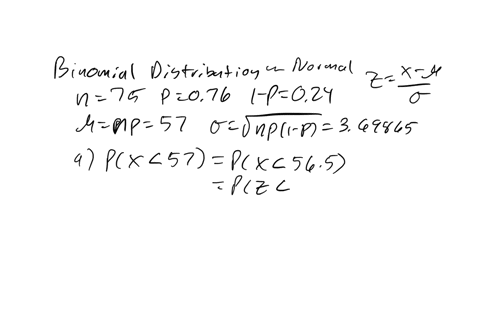 Binomial Distribution ~ Normal z = (x-μ)/σ
n=75 p=0.76 1-p=0.24
μ=np=57 σ=√(np(1-p))=3.69865
a) P(X<57) = P(X<56.5)
= P(Z<